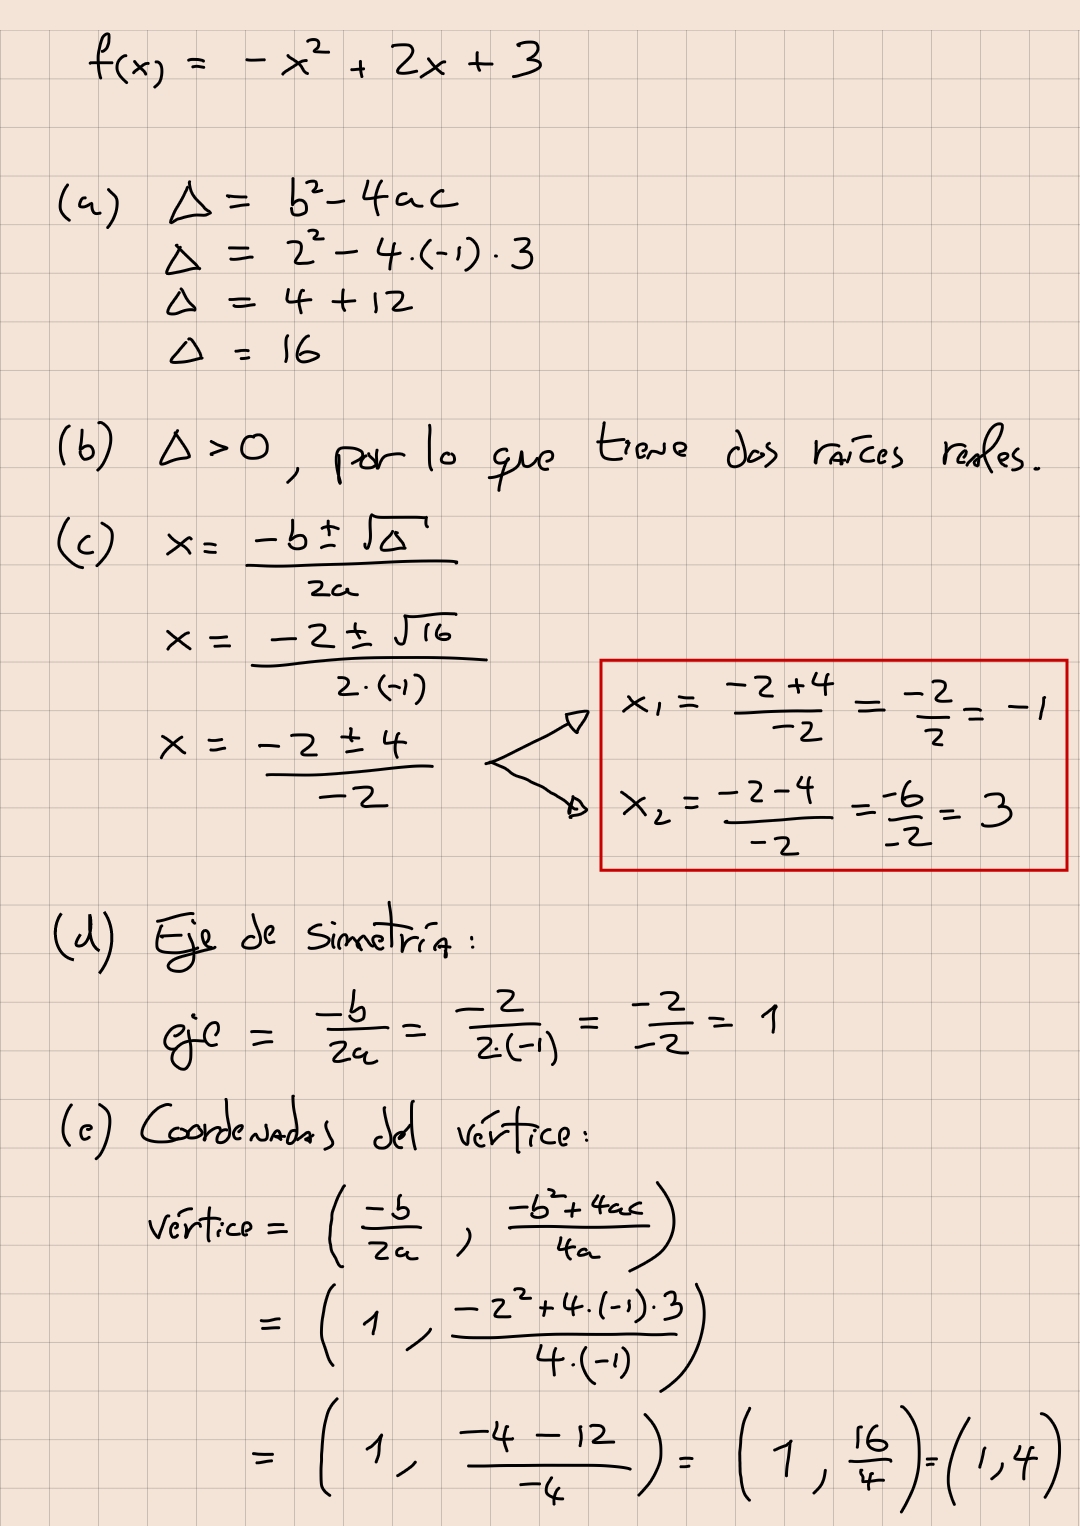 f(x) = - x² + 2x + 3
(a) Δ = b² - 4ac
Δ = 2² - 4·(-1)·3
Δ = 4 + 12
Δ = 16
(b) Δ > 0, por lo que tiene dos raíces reales.
(c) x = (-b ± √Δ) / 2a
x = (-2 ± √16) / 2·(-1)
x = (-2 ± 4) / -2
x₁ = (-2+4) / -2 = -2/2 = -1
x₂ = (-2-4) / -2 = -6/-2 = 3
(d) Eje de simetría:
eje = -b/2a = -2 / 2·(-1) = -2/-2 = 1
(e) Coordenadas del vértice:
vértice = (-b/2a , (-b²+4ac) / 4a)
= (1 , (-2²+4·(-1)·3) / 4·(-1))
= (1, (-4-12) / -4) = (1, 16/4) = (1,4)